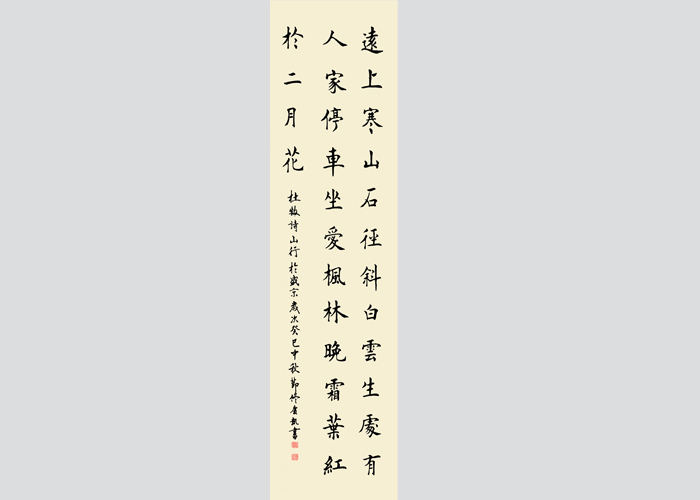 遠上寒山石徑斜白雲生處有
人家停車坐愛楓林晚霜葉紅
於二月花
杜牧詩山行於盛京歲次癸巳中秋節